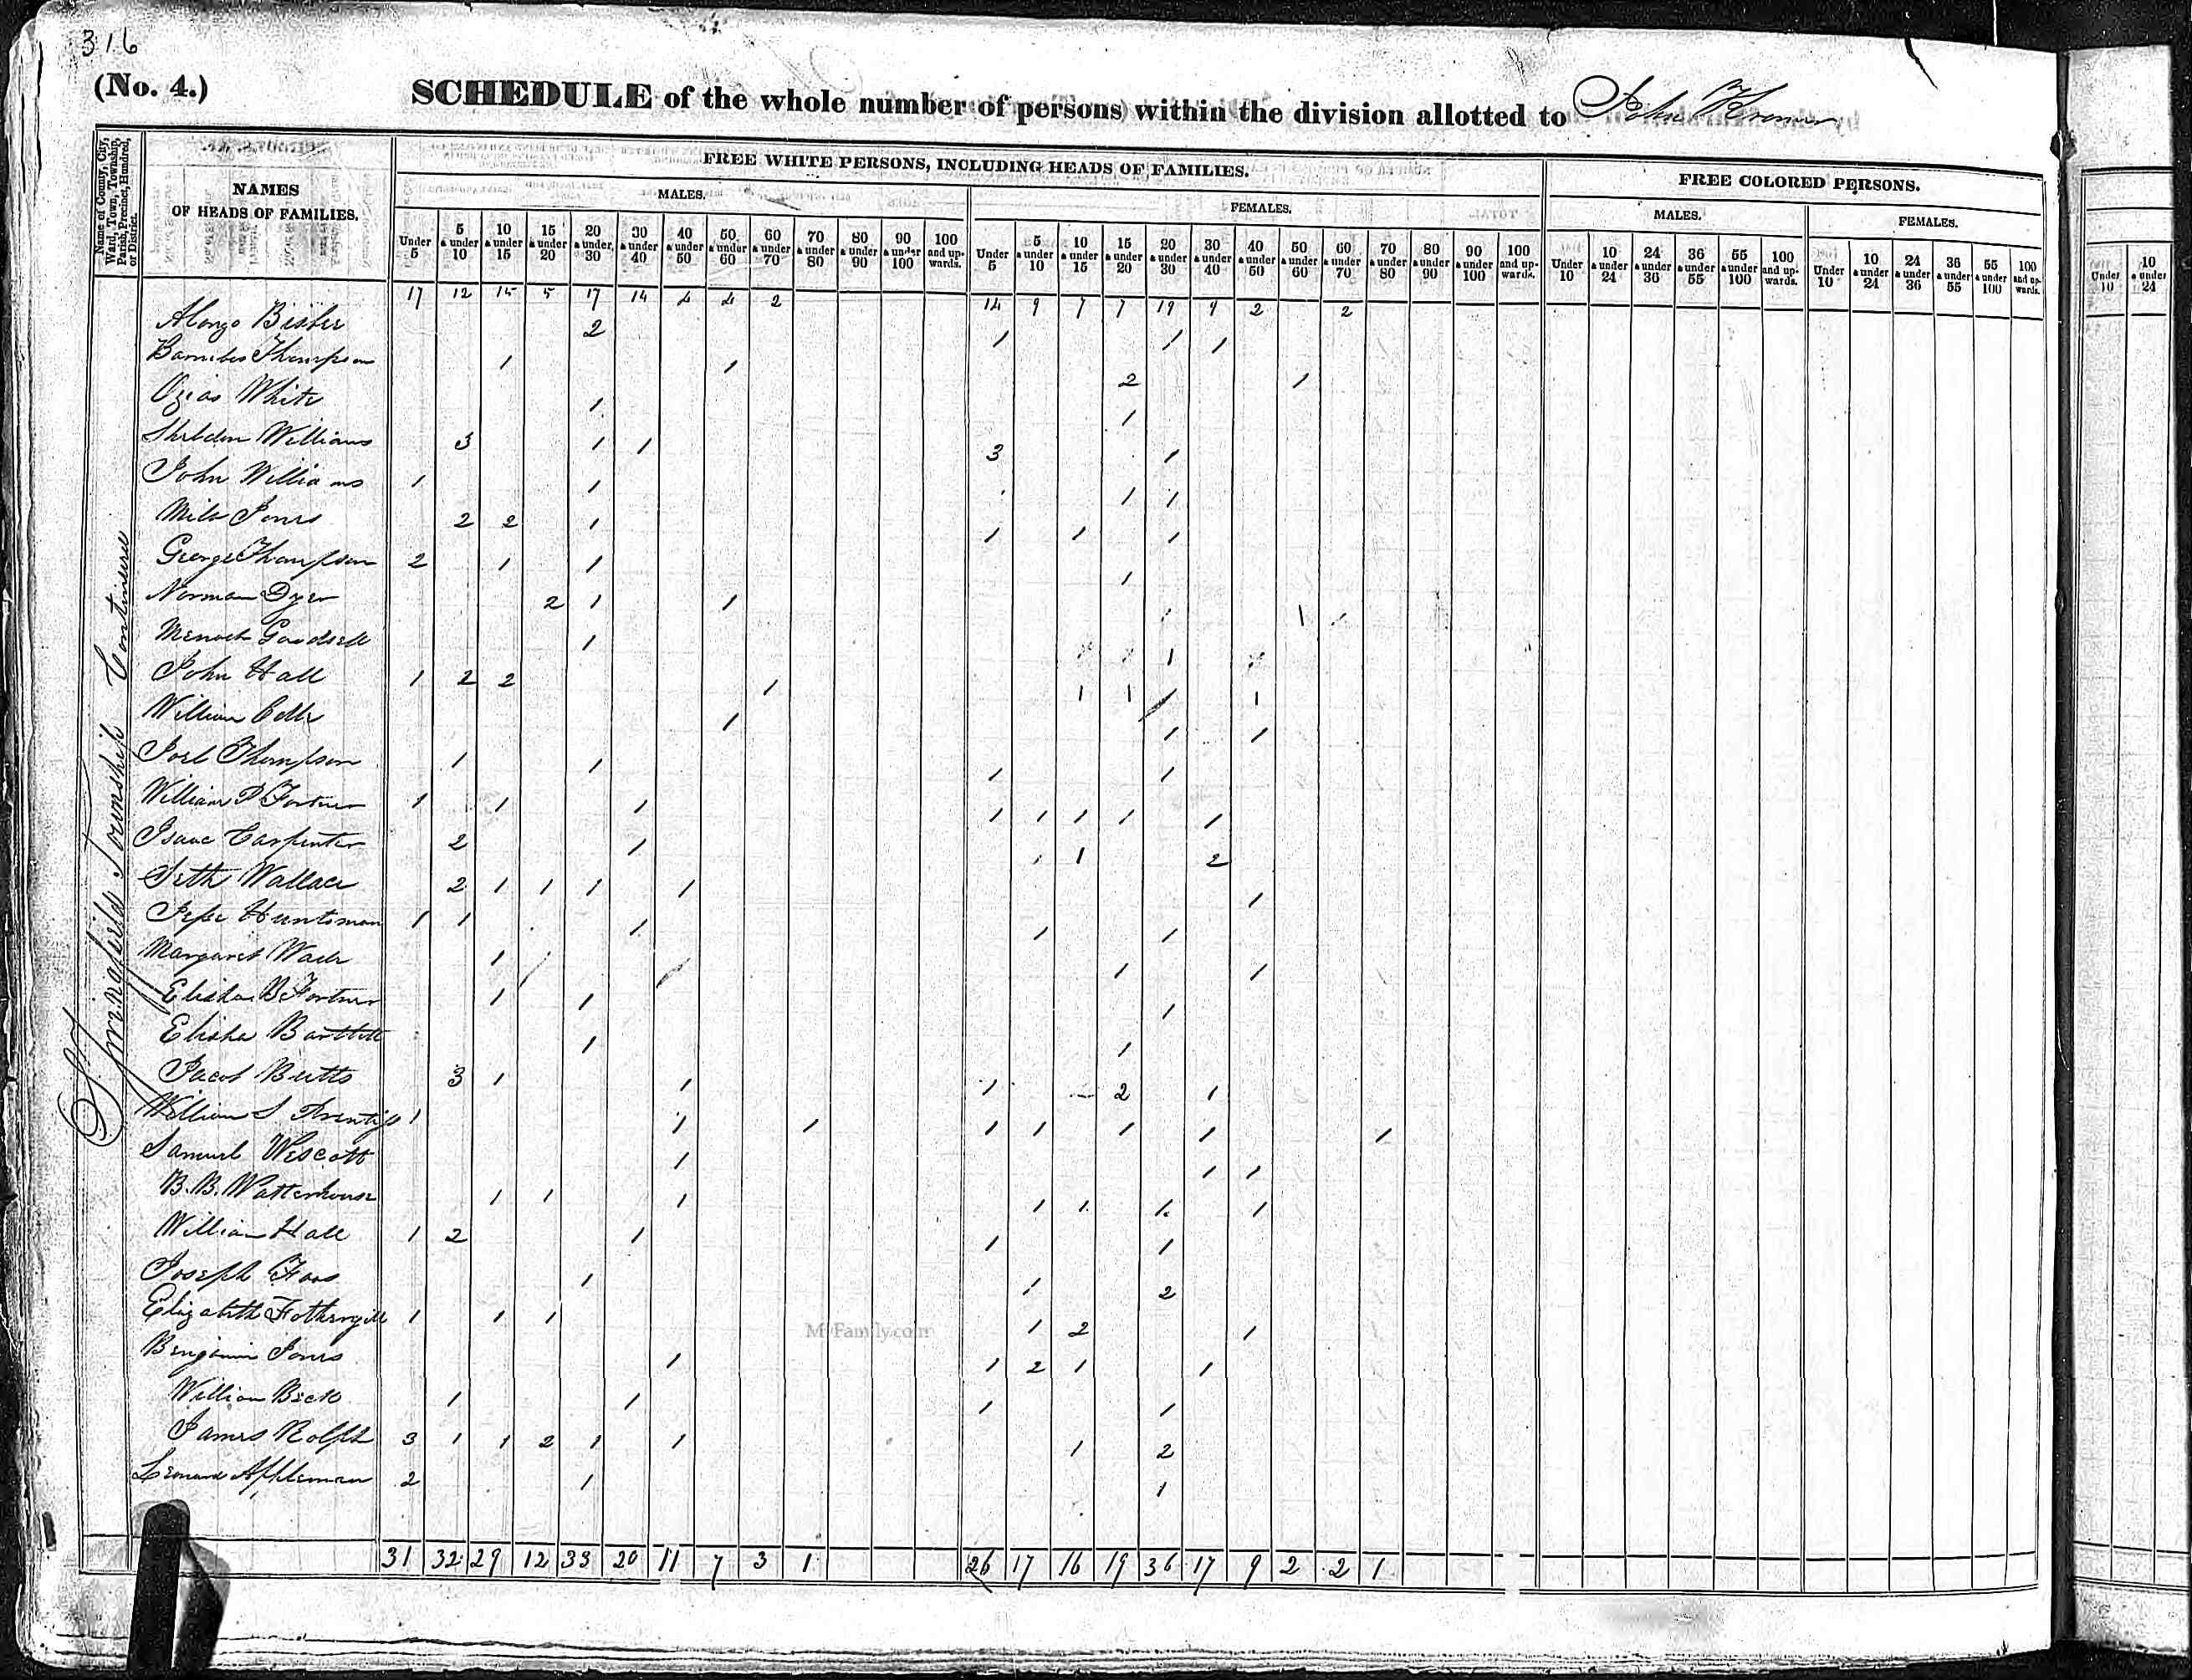 316
(No. 4.)
SCHEDULE of the whole number of persons within the division allotted to John
Name of County, City, Ward, Town, Township, Parish, Precinct, Hundred, or District.
NAMES
OF HEADS OF FAMILIES.
FREE WHITE PERSONS, INCLUDING HEADS OF FAMILIES.
FREE COLORED PERSONS.
MALES. FEMALES. MALES. FEMALES.
Under 5 | 5 & under 10 | 10 & under 15 | 15 & under 20 | 20 & under 30 | 30 & under 40 | 40 & under 50 | 50 & under 60 | 60 & under 70 | 70 & under 80 | 80 & under 90 | 90 & under 100 | 100 and upwards. | Under 5 | 5 & under 10 | 10 & under 15 | 15 & under 20 | 20 & under 30 | 30 & under 40 | 40 & under 50 | 50 & under 60 | 60 & under 70 | 70 & under 80 | 80 & under 90 | 90 & under 100 | 100 and upwards. | Under 10 | 10 & under 24 | 24 & under 36 | 36 & under 55 | 55 & under 100 | 100 and upwards. | Under 10 | 10 & under 24 | 24 & under 36 | 36 & under 55 | 55 & under 100 | 100 and upwards. | Under 10 | 10 & under 24
Springfield Township Continued
17 12 15 5 17 14 4 4 2 14 9 7 7 19 9 2 2
Alonzo 2 1 1 1
Thompson 1 1 2 1
Ozias White 1 1
Sheldon Williams 3 1 1 3 1
John Williams 1 1 1 1
Milo Jones 2 2 1 1 1 1
George Thompson 2 1 1 1
Norman Dyer 2 1 1 1 1
Goodsell 1 1
John Hall 1 2 2 1 1 1 1 1
William 1 1 1
Joel Thompson 1 1 1 1
William P Fortner 1 1 1 1 1 1 1 1
Isaac Carpenter 2 1 1 1 2
Seth Wallace 2 1 1 1 1 1
Jesse Huntsman 1 1 1 1 1
Margaret Wade 1 1 1
Elisha B Fortner 1 1 1
Elisha Bartlett 1 1
Jacob Butts 3 1 1 1 2 1
William S Prentiss 1 1 1 1 1 1 1 1
Samuel Wescott 1 1 1
B. B. Watterhouse 1 1 1 1 1 1 1
William Hall 1 2 1 1 1
Joseph Foos 1 1 2
Elizabeth Fothergill 1 1 1 1 2 1
Benjamin Jones 1 1 2 1 1
William Beck 1 1 1 1
James Rolph 3 1 1 2 1 1 1 2
Leonard Appleman 2 1 1
31 32 29 12 33 20 11 7 3 1 26 17 16 19 36 17 9 2 2 1
MyFamily.com